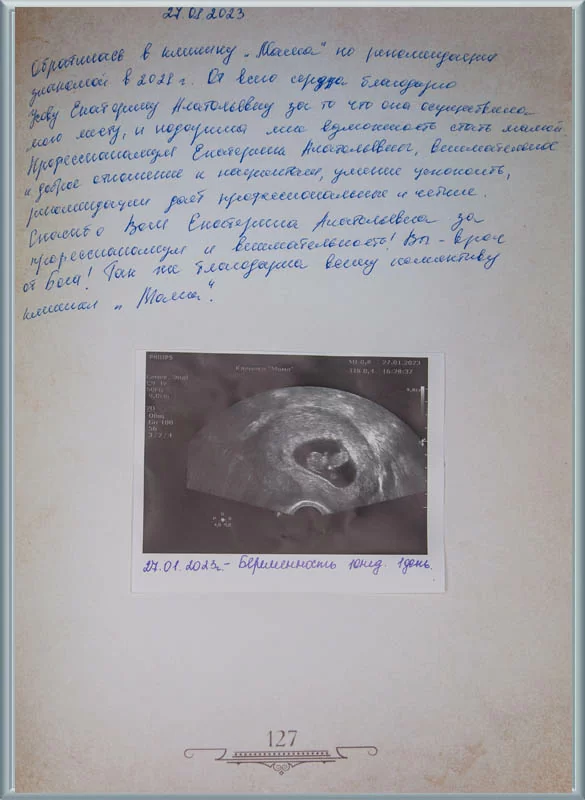 27.01.2023
Обратилась в клинику „Мама" по рекомендации
знакомой в 2021 г. От всего сердца благодарю
Усову Екатерину Анатольевну за то что она осуществила
мою мечту, и подарила мне возможность стать мамой.
Профессионализм Екатерины Анатольевны, внимательное
и доброе отношение к пациентам, умение успокоить,
рекомендации даёт профессиональные и чёткие.
Спасибо Вам Екатерина Анатольевна за
профессионализм и внимательность! Вы - врач
от Бога! Так же благодарна всему коллективу
клиники „Мама".
PHILIPS
Клиника "Мама"
27.01.2023
16:20:37
2D
Общ
56
3/2/4
27.01.2023г.- Беременность 10нед. 1день.
127